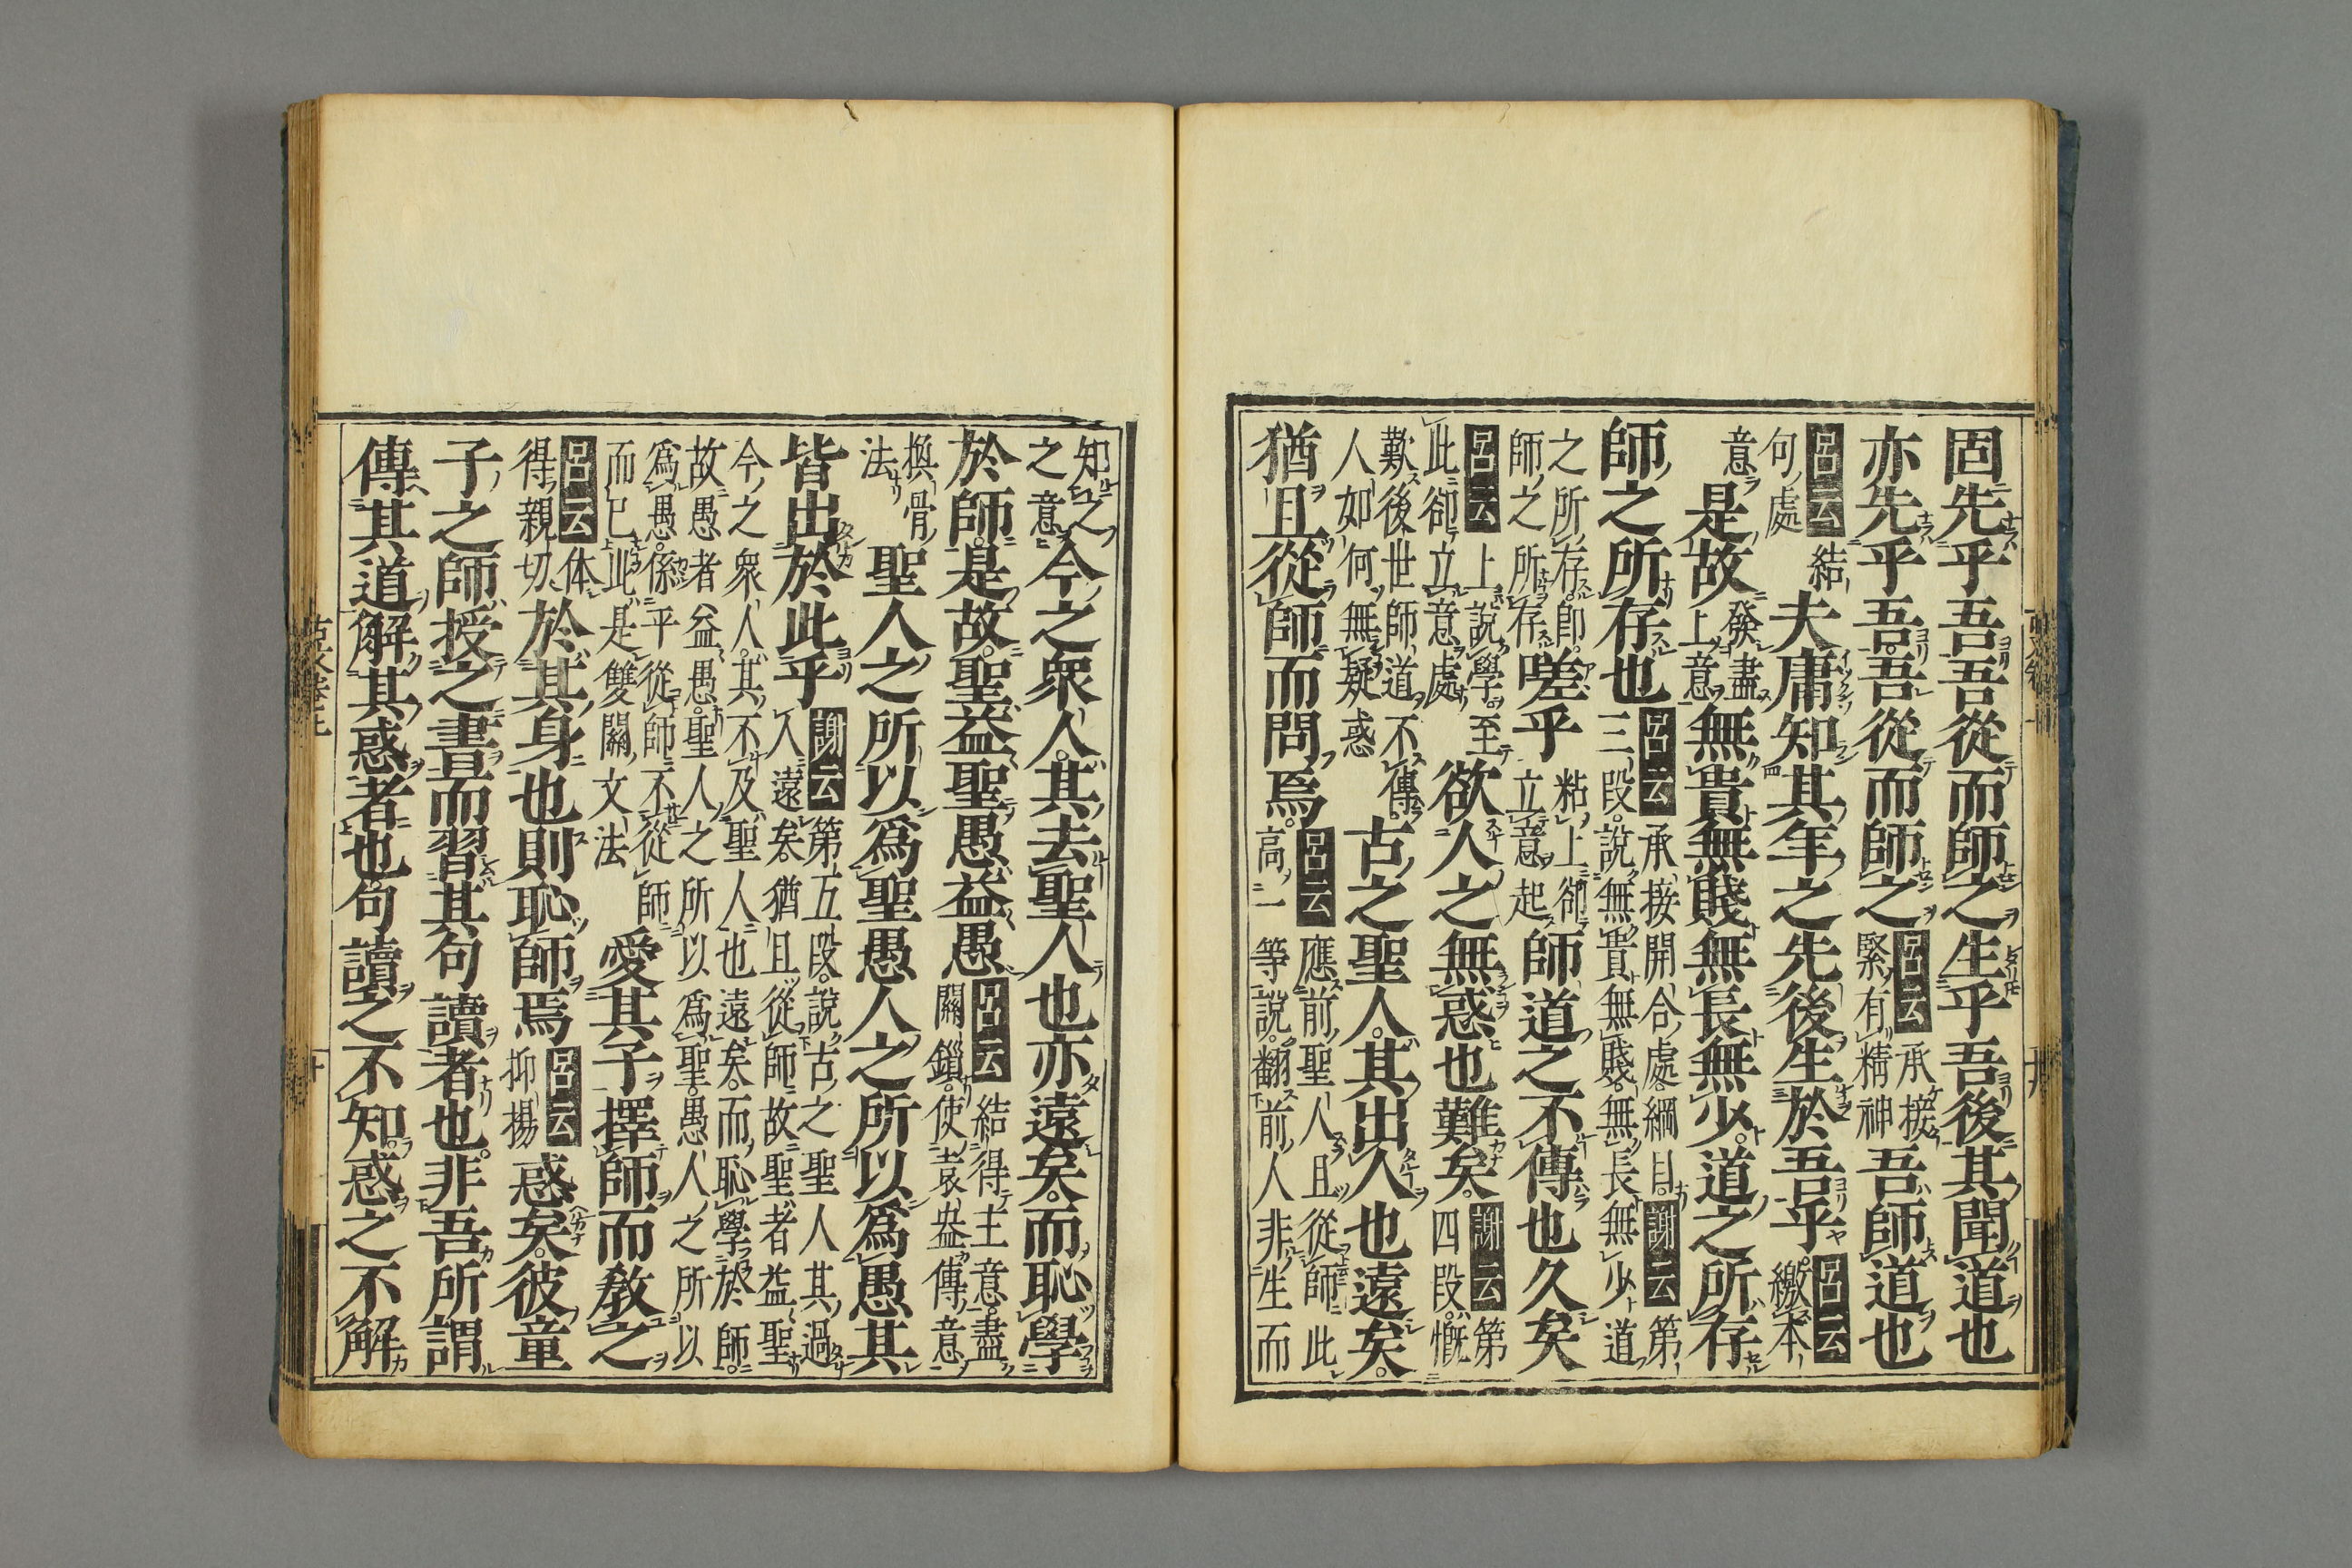 固先乎吾吾從而師之生乎吾後其聞道也
亦先乎吾吾從而師之呂云承接緊有精神吾師道也
呂云結句處夫庸知其年之先後生於吾乎呂云繳本
意是故發盡上意無貴無賤無長無少道之所存
師之所存也呂云承接開合處綱目謝云第三段說無貴無賤無長無少道
之所存卽師之所存嗟乎粘上卻立意起師道之不傳也久矣
呂云上說學至此卻立意處欲人之無惑也難矣謝云第四段慨
歎後世師道不傳人如何無疑惑古之聖人其出人也遠矣
猶且從師而問焉呂云應前聖人且從師此高一等說翻前人非生而
知之之意今之衆人其去聖人也亦遠矣而恥學
於師是故聖益聖愚益愚呂云結得主意盡關鎖使袁盎傳意
換骨法聖人之所以爲聖愚人之所以爲愚其
皆出於此乎謝云第五段說古之聖人其過人遠矣猶且從師故聖者益聖
今之衆人其不及聖人也遠矣而恥學於師故愚者益愚聖人之所以爲聖愚人之所以
爲愚係乎從師不從師而已此是雙關文法愛其子擇師而敎之
呂云体得親切於其身也則恥師焉呂云抑揚惑矣彼童
子之師授之書而習其句讀者也非吾所謂
傳其道解其惑者也句讀之不知惑之不解